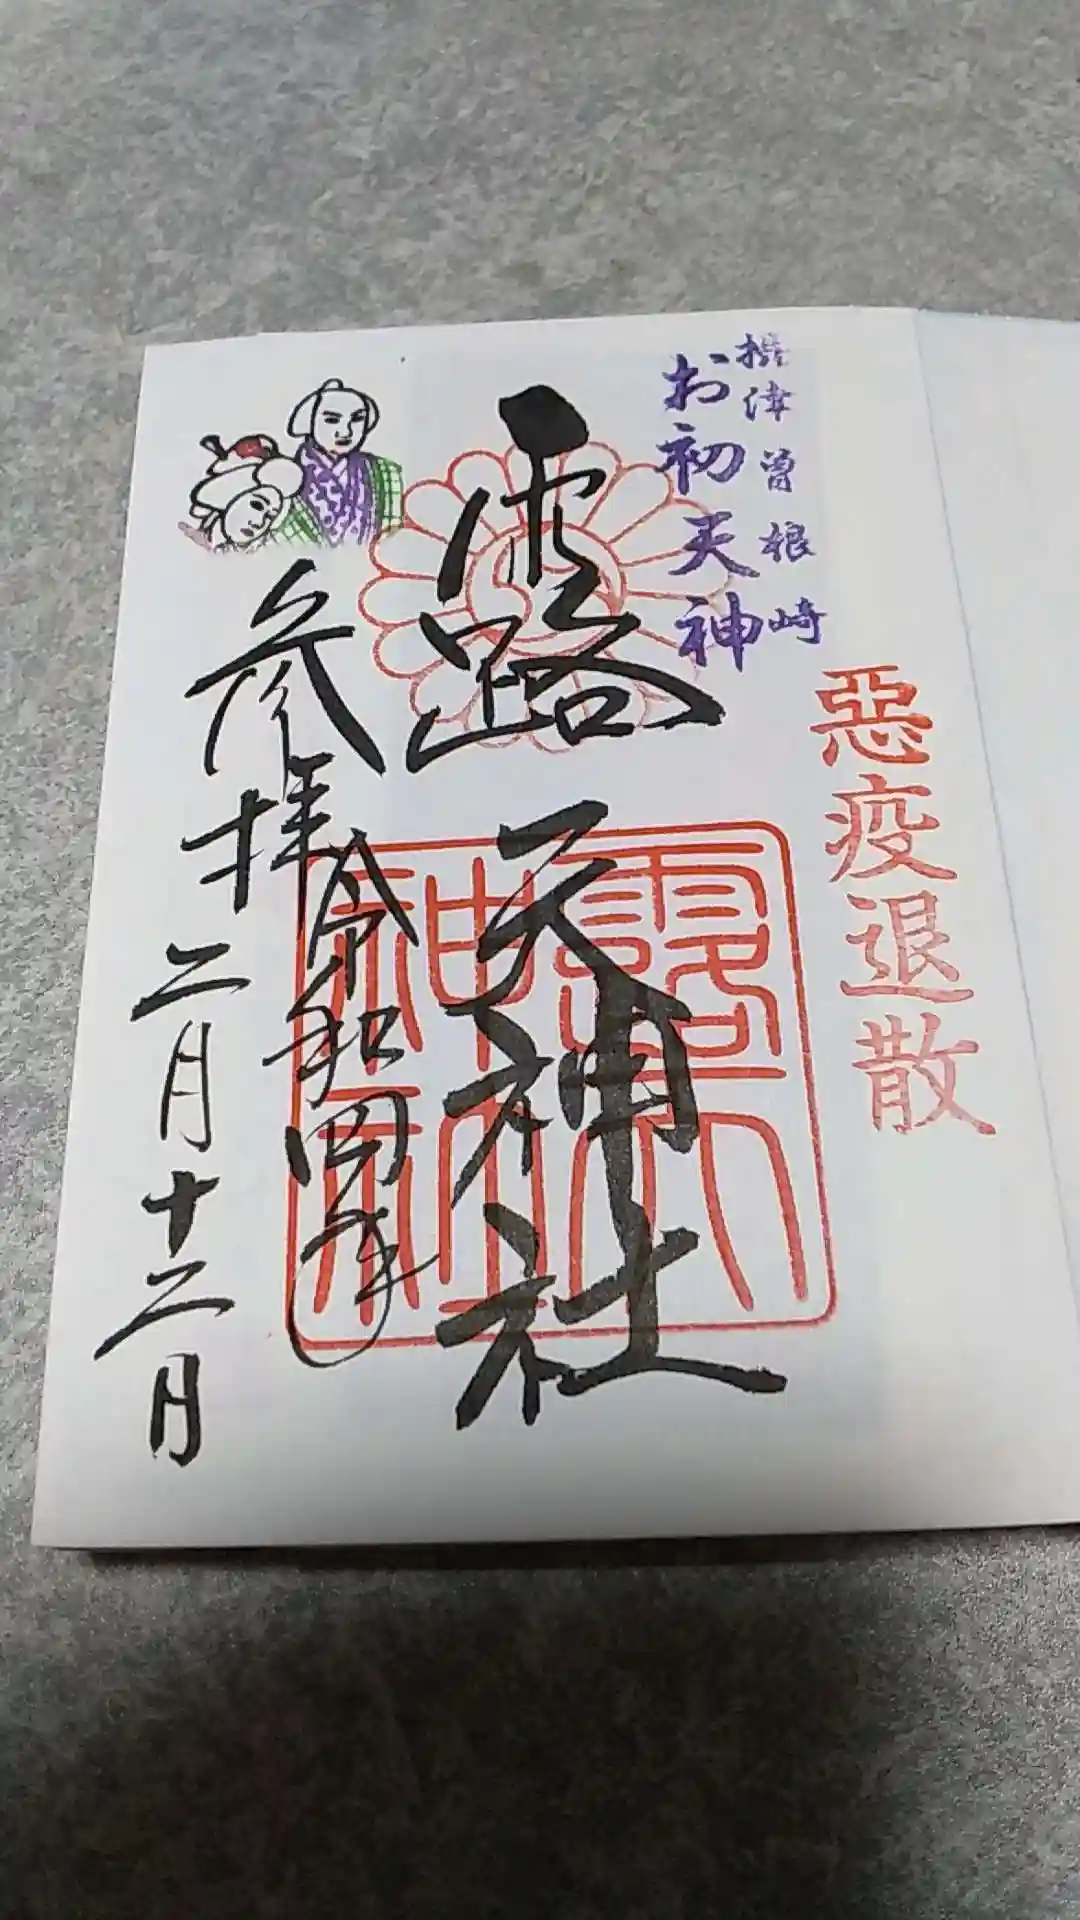 悪疫退散
摂津曽根崎
お初天神
露天神社
露天神社
令和四年
参拝
二月十二日